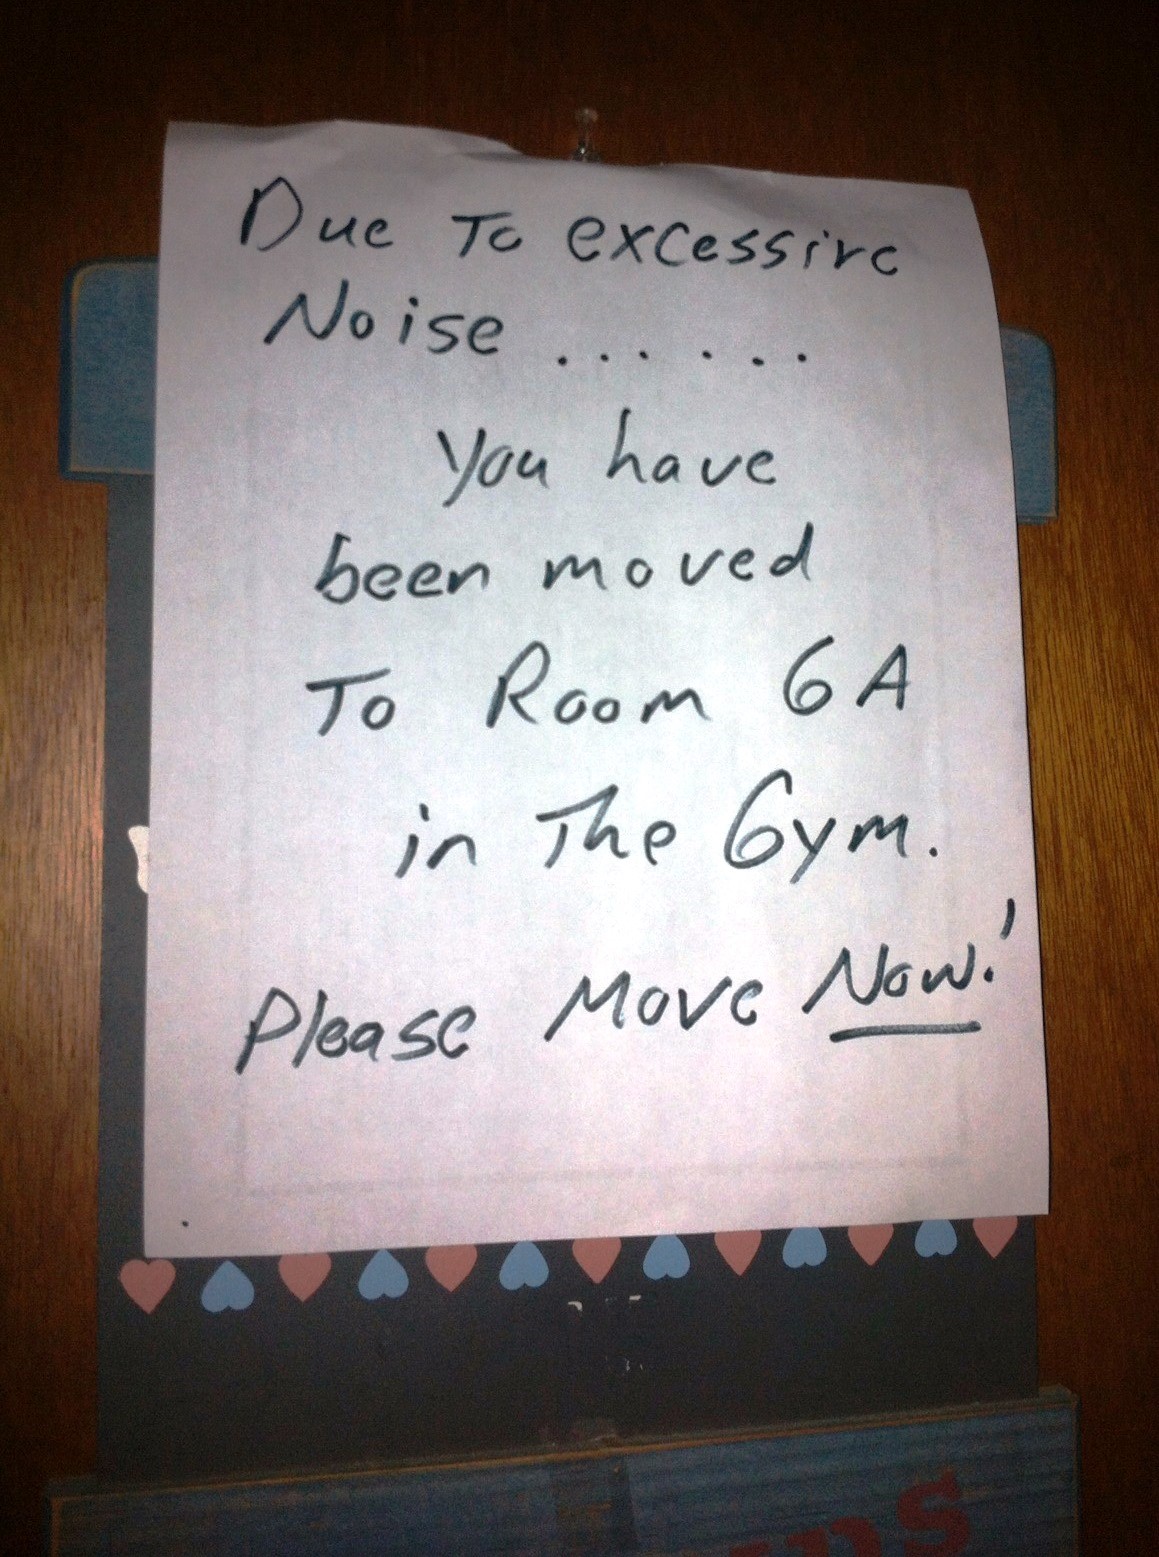 Due To excessive
Noise ......
You have
been moved
To Room 6A
in The Gym.
Please Move Now!